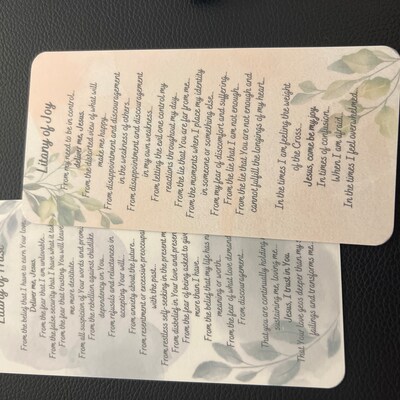 Litany of Joy
From my need to be in control...
deliver me, Jesus.
From the distorted view of what will
make me happy...
From disappointment and discouragement
in the weakness of others...
From disappointment and discouragement
in my own weakness...
From letting the evil one control my
reactions throughout my day...
From the lie that You are far from me...
From the moments when I place my identity
in someone or something else...
From my fear of discomfort and suffering...
From the lie that I am not enough...
From the lie that You are not enough and
cannot fulfill the longings of my heart...
In the times I am feeling the weight
of the Cross...
Jesus, come be my joy.
In times of confusion...
When I am afraid...
In the times I feel overwhelmed...
Litany of
From the belief that I have to earn Your love
Deliver me, Jesus.
From the fear that I am unlovable...
From the false security that I have what it takes
From the fear that trusting You will leave
me more destitute...
From all suspicion of Your words and
From the rebellion against childlike
depending on You...
From refusals and reluctances in
accepting Your will...
From anxiety about the future...
From resentment or excessive preoccupation
with the past...
From restless self-seeking in the present m
From disbelief in Your love and presen
From the fear of being asked to give
more than I have...
From the belief that my life has n
meaning or worth...
From the fear of what love deman
From discouragement...
That You are continually holding
sustaining me, loving me...
Jesus, I trust in You.
That Your love goes deeper than my
failings and transforms me.